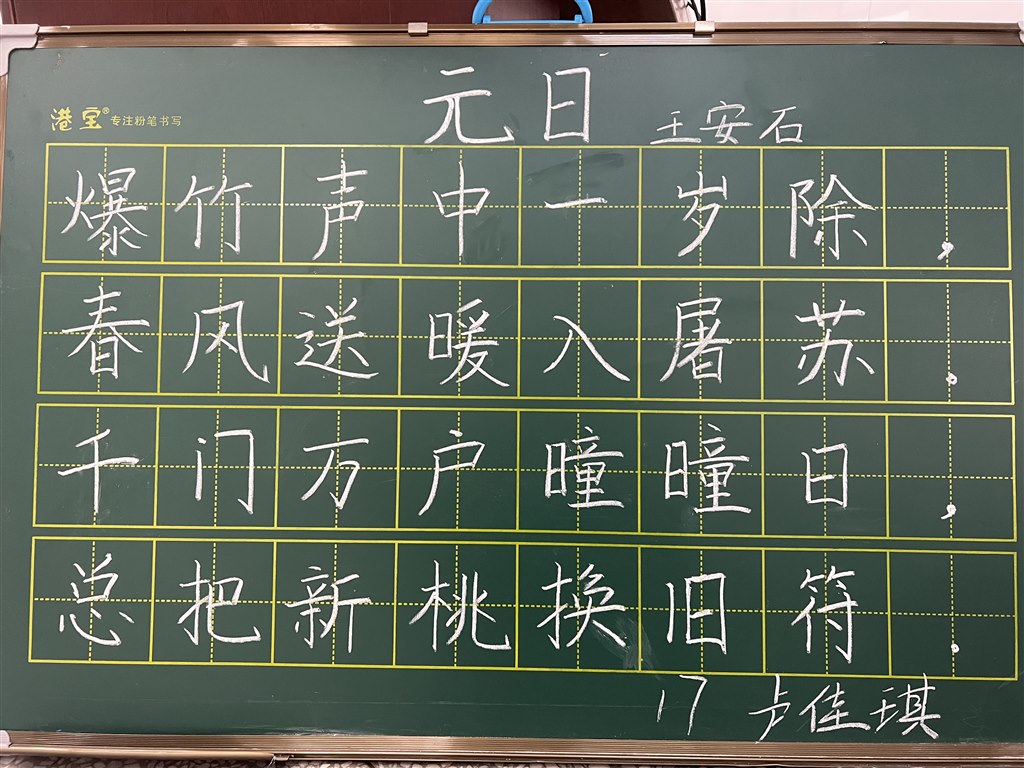 元日
王安石
港宝® 专注粉笔书写
爆竹声中一岁除，
春风送暖入屠苏。
千门万户曈曈日，
总把新桃换旧符。
17 卢佳琪